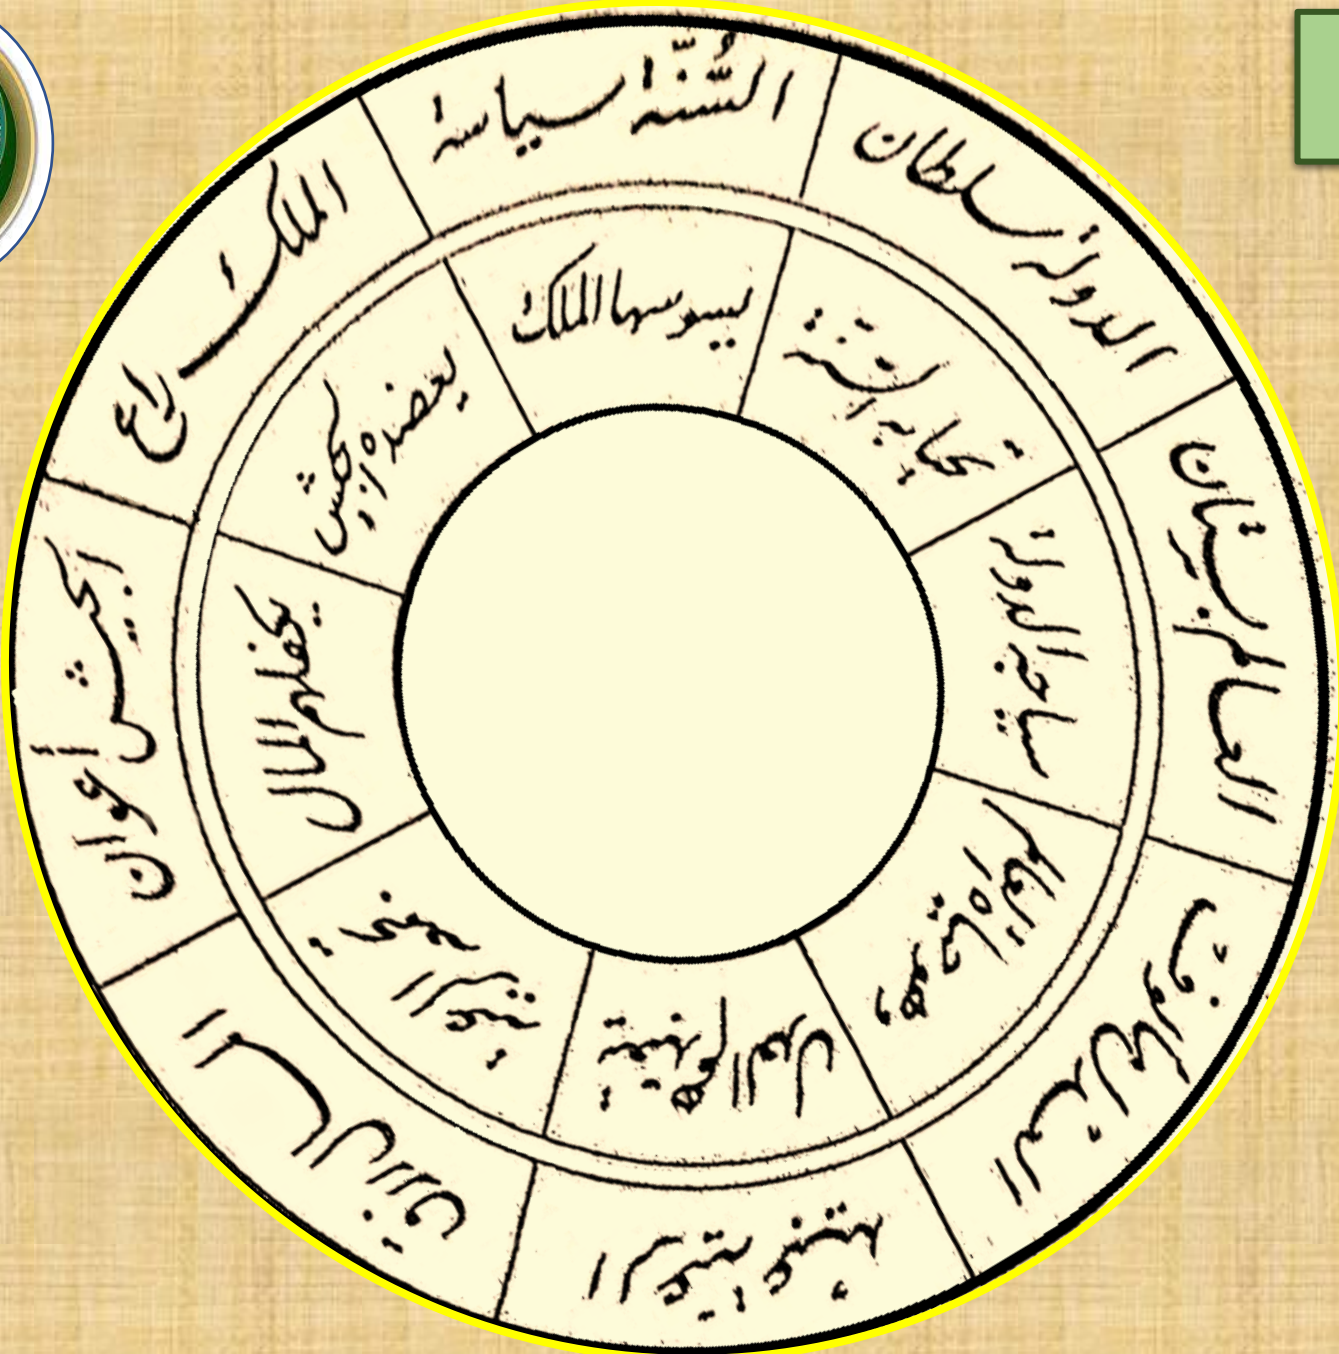 العالم بستان
سياجه الدولة
الدولة سلطان
تحيا به السُّنَّة
السُّنَّة سياسة
يسوسها الملك
الملك راع
يعضده الجيش
الجيش أعوان
يكفلهم المال
المال رزق
الرعية
الرعية
العدل
العدل مالوف
وهو حياة العالم